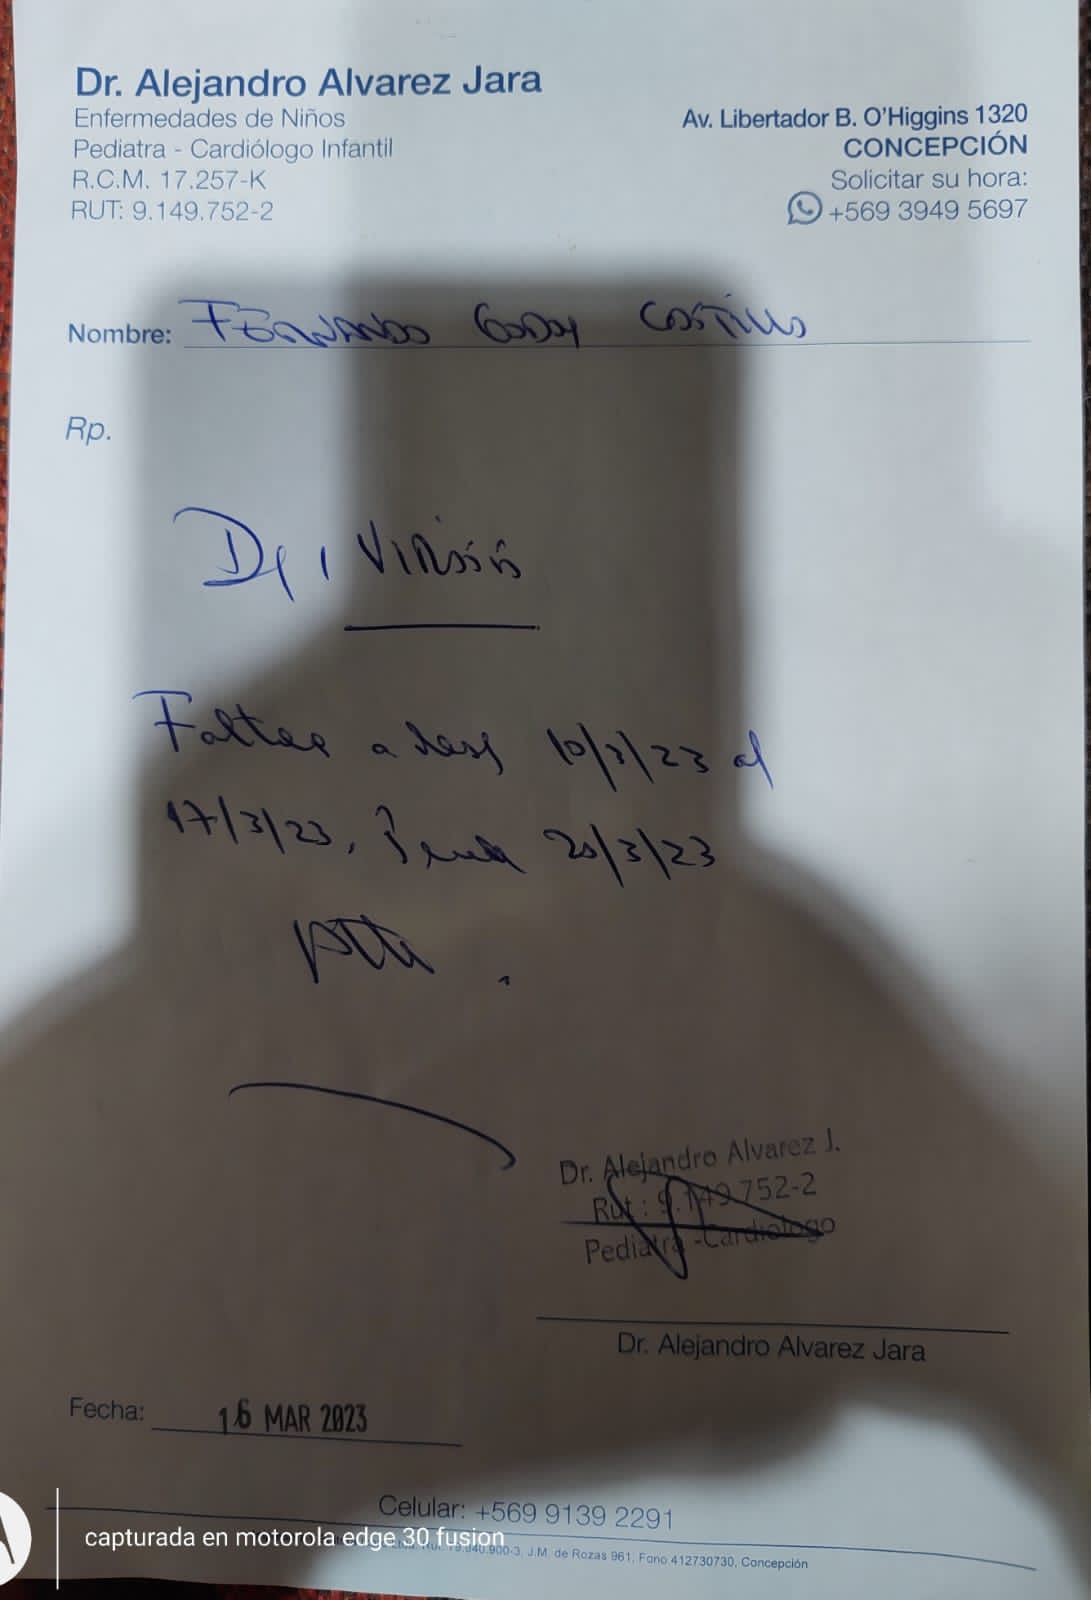 Dr. Alejandro Alvarez Jara
Enfermedades de Niños
Pediatra - Cardiólogo Infantil
R.C.M. 17.257-K
RUT: 9.149.752-2
Av. Libertador B. O'Higgins 1320
CONCEPCIÓN
Solicitar su hora:
+569 3949 5697
Nombre: Fernando Godoy Castillo
Rp.
Virosis
Faltar a 10/3/23 al
17/3/23, 20/3/23
Dr. Alejandro Alvarez J.
Rut : 9.149.752-2
Pediatra -Cardiologo
Dr. Alejandro Alvarez Jara
Fecha: 16 MAR 2023
Celular: +569 9139 2291
capturada en motorola edge 30 fusion
J.M. de Rozas 961, Fono 412730730, Concepción